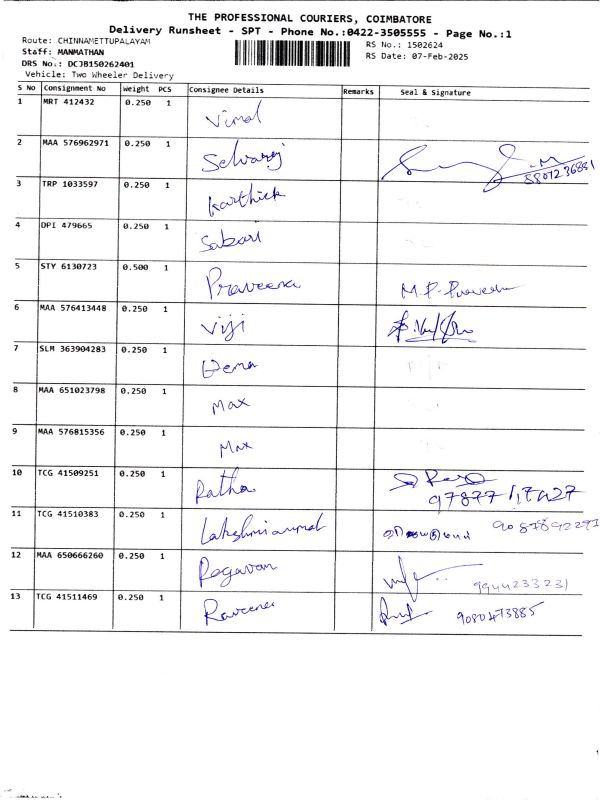 THE PROFESSIONAL COURIERS, COIMBATORE
Delivery Runsheet - SPT - Phone No.:0422-3505555 - Page No.:1
Route: CHINNAMETTUPALAYAM
RS No.: 1502624
Staff: MANMATHAN
RS Date: 07-Feb-2025
DRS No.: DCJB150262401
Vehicle: Two Wheeler Delivery
S No Consignment No Weight PCS Consignee Details Remarks Seal & Signature
1 MRT 412432 0.250 1 Vimal
2 MAA 576962971 0.250 1 Selvaraj
3 TRP 1033597 0.250 1 Karthick
4 DPI 479665 0.250 1 Sabari
5 STY 6130723 0.500 1 Praveena M.P.
6 MAA 576413448 0.250 1 Viji
7 SLM 363904283 0.250 1 Hema
8 MAA 651023798 0.250 1 Max
9 MAA 576815356 0.250 1 Max
10 TCG 41509251 0.250 1 Ratha
97877
11 TCG 41510383 0.250 1 Lakshmiammal
12 MAA 650666260 0.250 1 Ragavan 9944233231
13 TCG 41511469 0.250 1 Raveena 9080473885